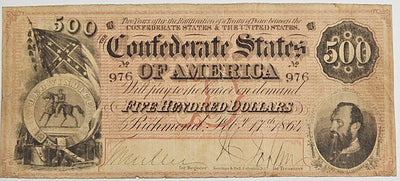 500
Two Years after the Ratification of a Treaty of Peace between the
CONFEDERATE STATES & THE UNITED STATES.
Confederate States
OF AMERICA
500
No 976
No 976
Will pay to the bearer on demand
FIVE HUNDRED DOLLARS
Richmond Feby. 17th 1864
for Register
for Treasurer